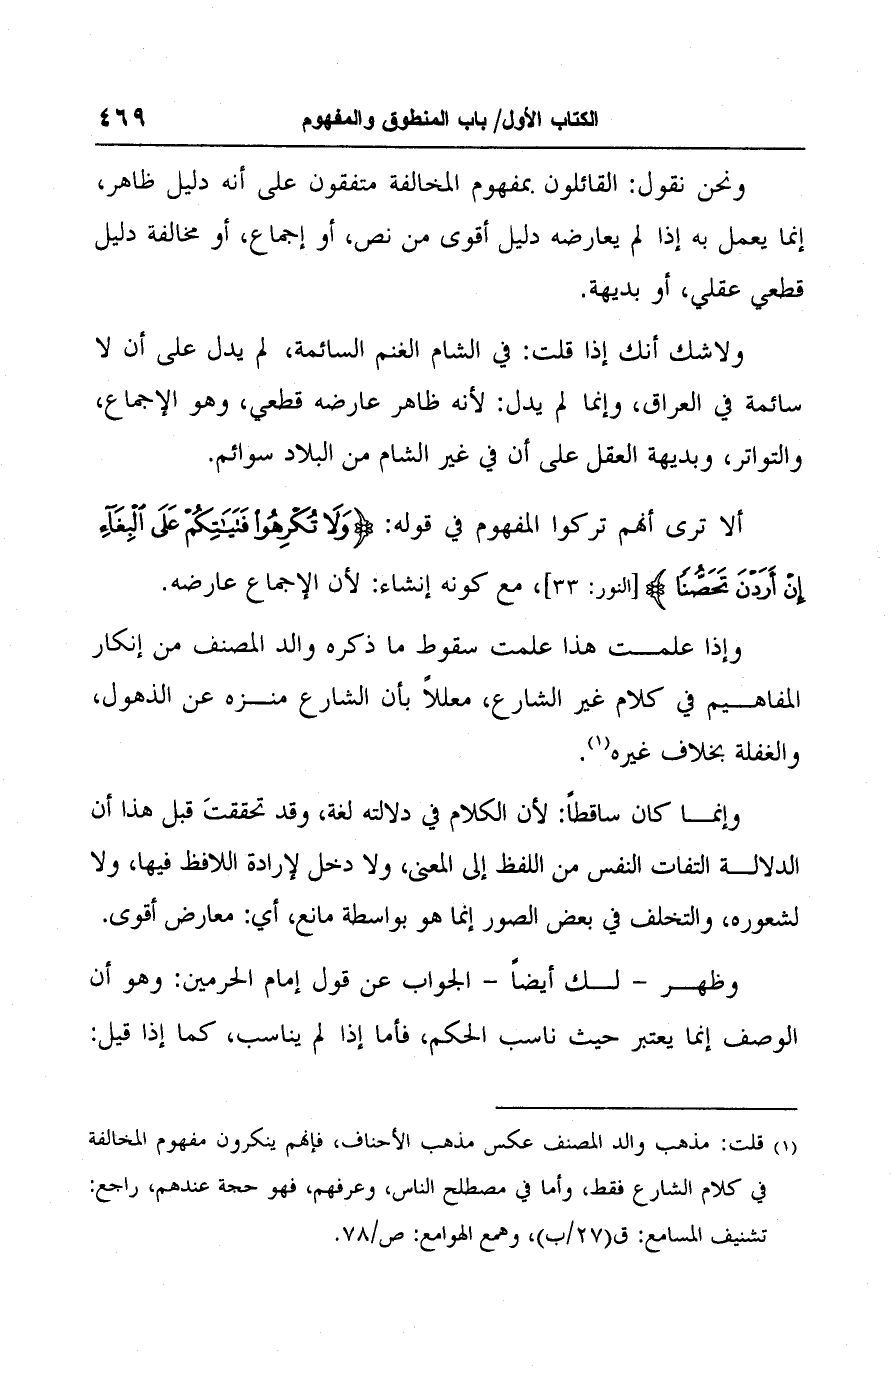 الكتاب الأول/ باب المنطوق والمفهوم ٤٦٩
ونحن نقول: القائلون بمفهوم المخالفة متفقون على أنه دليل ظاهر،
إنما يعمل به إذا لم يعارضه دليل أقوى من نص، أو إجماع، أو مخالفة دليل
قطعي عقلي، أو بديهة.
ولاشك أنك إذا قلت: في الشام الغنم السائمة، لم يدل على أن لا
سائمة في العراق، وإنما لم يدل: لأنه ظاهر عارضه قطعي، وهو الإجماع،
والتواتر، وبديهة العقل على أن في غير الشام من البلاد سوائم.
ألا ترى أنهم تركوا المفهوم في قوله: ﴿وَلَا تُكْرِهُوا۟ فَتَيَـٰتِكُمْ عَلَى ٱلْبِغَآءِ
إِنْ أَرَدْنَ تَحَصُّنًا﴾ [النور: ٣٣]، مع كونه إنشاء: لأن الإجماع عارضه.
وإذا علمـــت هذا علمت سقوط ما ذكره والد المصنف من إنكار
المفاهـــيم في كلام غير الشارع، معللاً بأن الشارع منـــزه عن الذهول،
والغفلة بخلاف غيره(١).
وإنمـــا كان ساقطاً: لأن الكلام في دلالته لغة، وقد تحققتَ قبل هذا أن
الدلالـــة التفات النفس من اللفظ إلى المعنى، ولا دخل لإرادة اللافظ فيها، ولا
لشعوره، والتخلف في بعض الصور إنما هو بواسطة مانع، أي: معارض أقوى.
وظهـــر - لـــك أيضاً - الجواب عن قول إمام الحرمين: وهو أن
الوصف إنما يعتبر حيث ناسب الحكم، فأما إذا لم يناسب، كما إذا قيل:
(١) قلت: مذهب والد المصنف عكس مذهب الأحناف، فإنهم ينكرون مفهوم المخالفة
في كلام الشارع فقط، وأما في مصطلح الناس، وعرفهم، فهو حجة عندهم، راجع:
تشنيف المسامع: ق(٢٧/ب)، وهمع الهوامع: ص/٧٨.